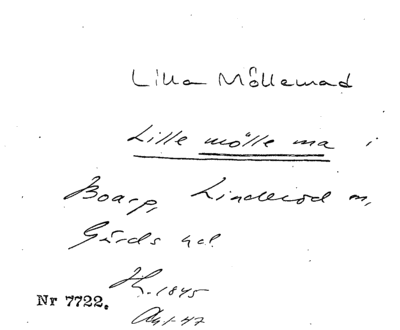 Lilla Möllemad
Lille mölle ma i
Boarp, Linderöd sn,
Gärds hd.
1845
Nr 7722.